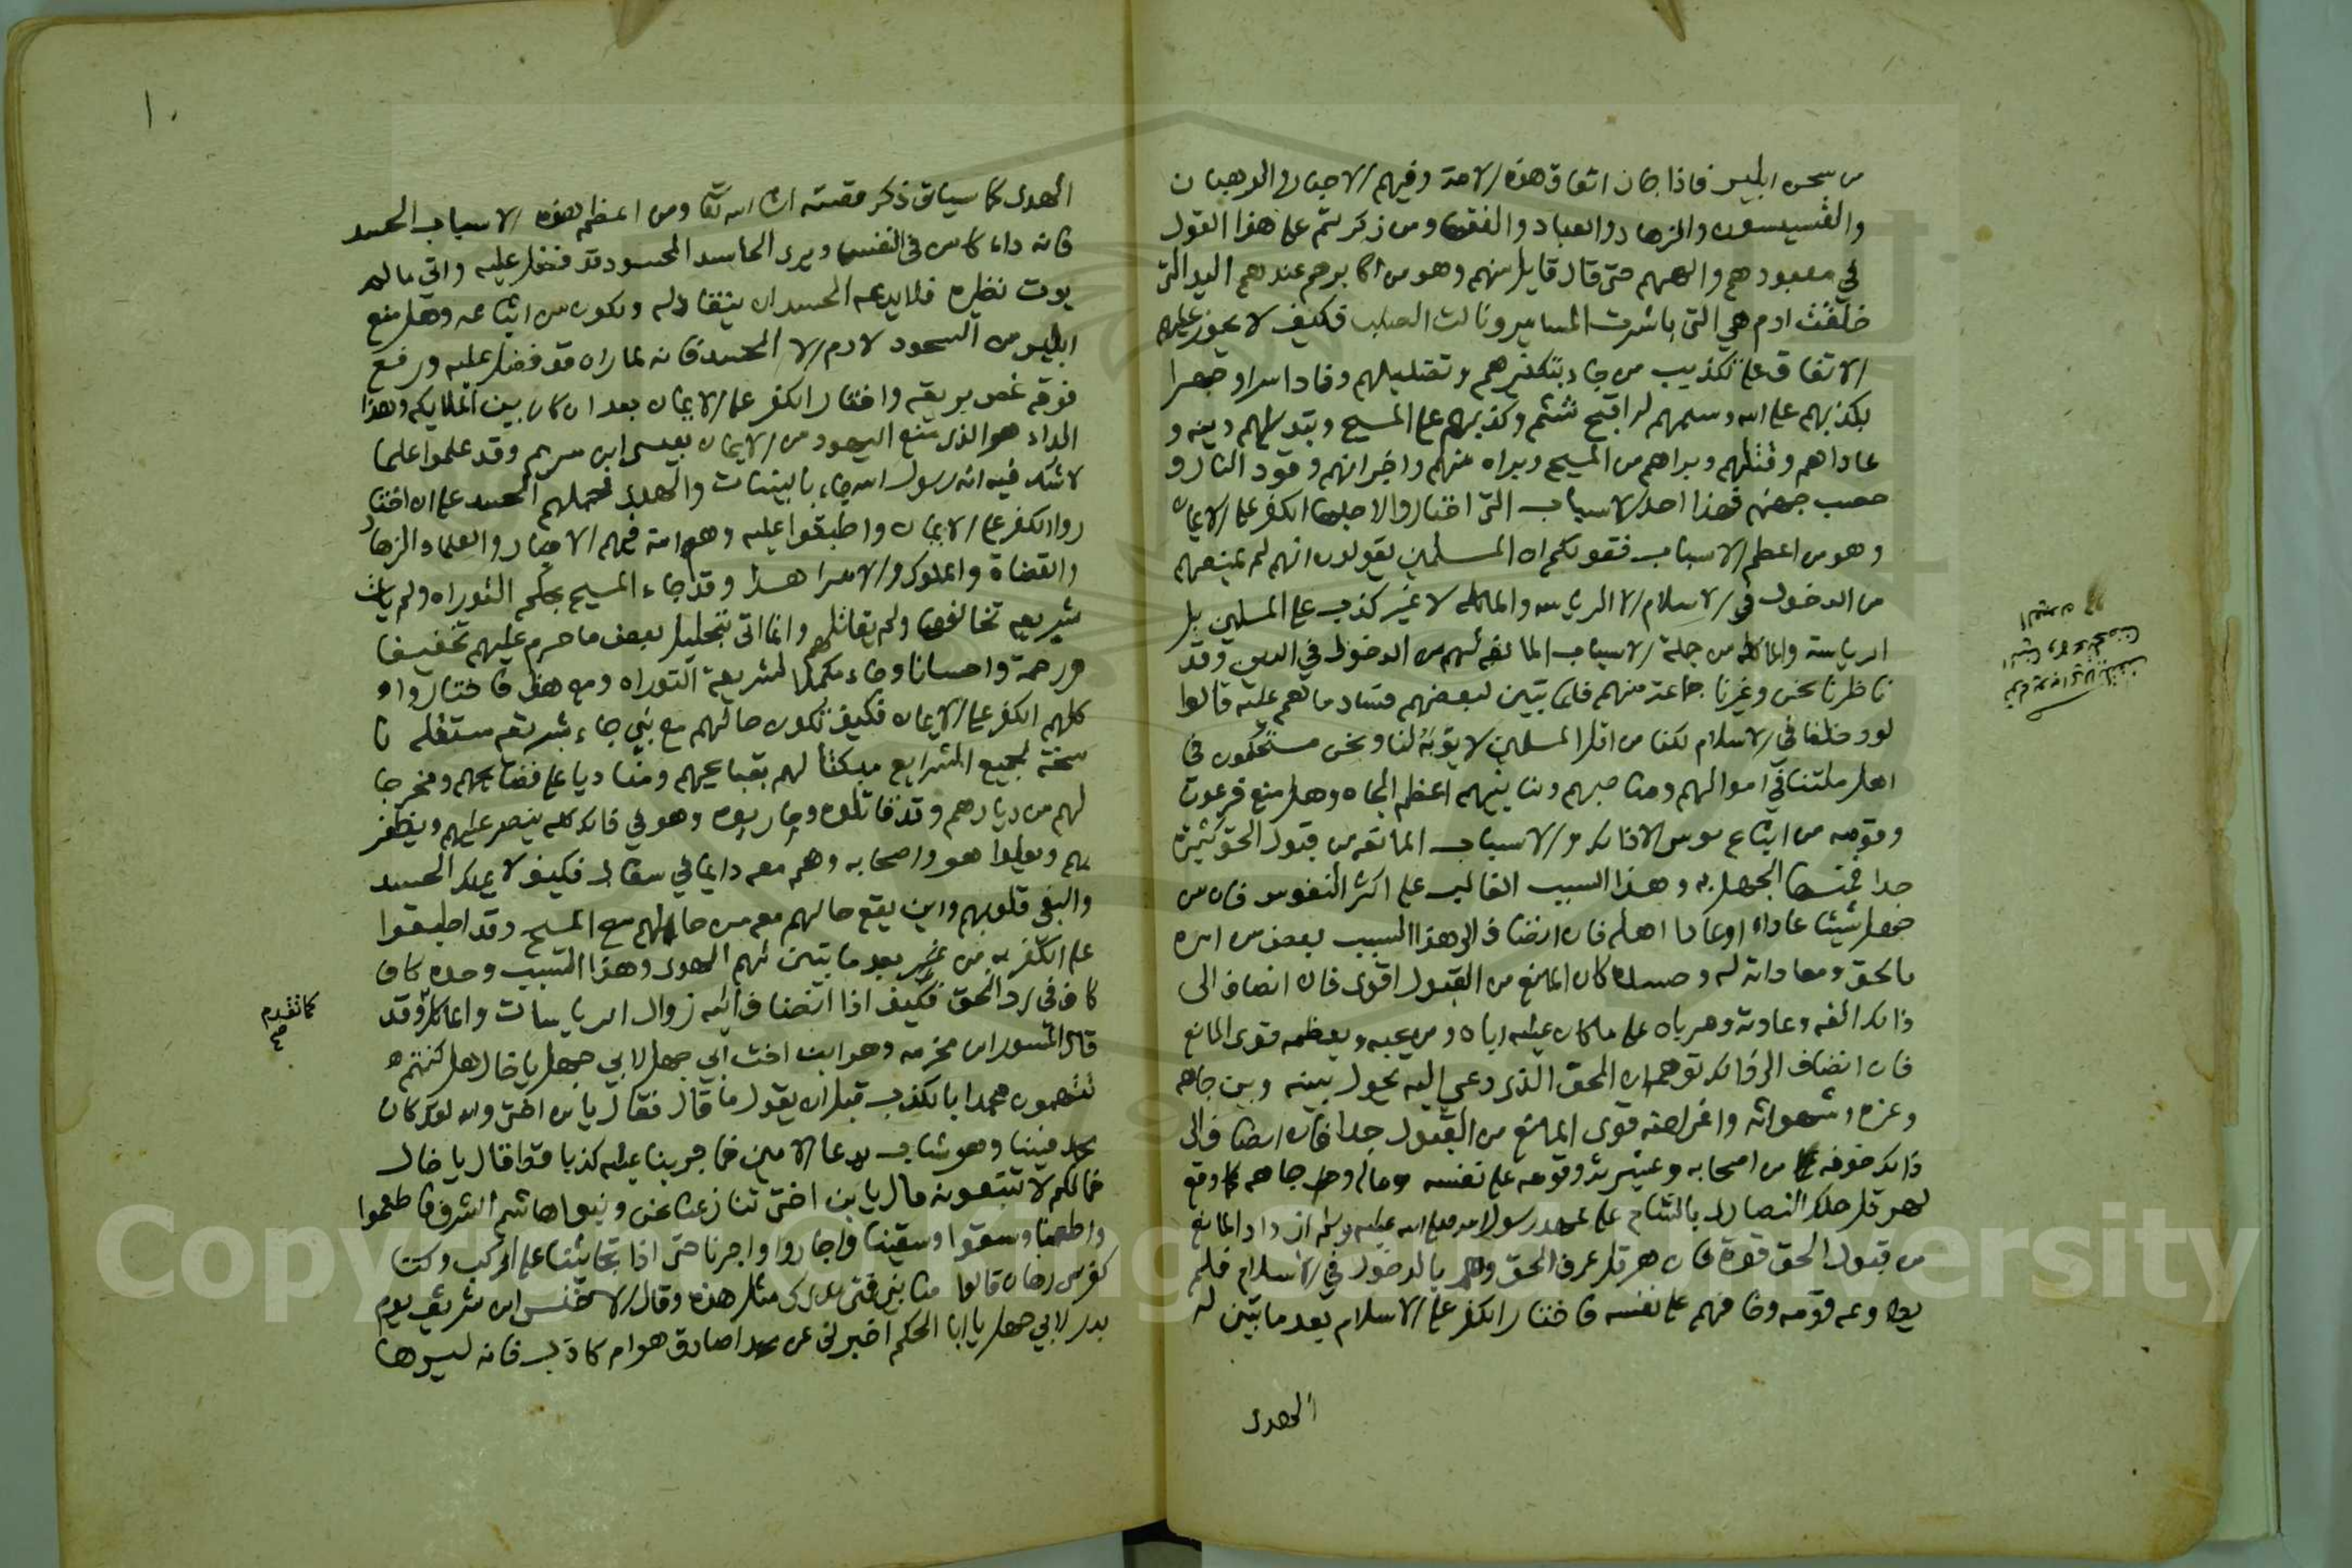 من سجن ابليس فاذا جاز اتفاق هذه الامة وفيهم الاحبار والرهبان
والقسيسون والزهاد والعباد والفقها ومن ذكرتم على هذا القول
في معبودهم والههم حتى قال قايل منهم وهو من اكابرهم عندهم اليد التي
خلقت ادم هي التي باشرت المسامير ونالت الصلب فكيف لا يجوز عليهم
الاتفاق على تكذيب من جاء بتكفيرهم وتضليلهم ونادا سرا وجهرا
بكذبهم على الله وشتمهم له اقبح شتم وكذبهم على المسيح وتبديلهم دينه و
عاداهم وقتلهم وبراهم من المسيح وبراه منهم واخبر انهم وقود النار و
حصب جهنم فهذا احد الاسباب التي اختاروا لاجلها الكفر على الايمان
وهو من اعظم الاسباب فقولكم ان المسلمين يقولون انهم لم يمنعهم
من الدخول في الاسلام الا الرياسه والماكله لا غير كذب على المسلمين بل
الرياسة والماكله من جملة الاسباب المانعه لهم من الدخول في الدين وقد
ناظرنا نحن وغيرنا جماعة منهم فلما تبين لبعضهم فساد ما هم عليه قالوا
لو دخلنا في الاسلام لكنا من اقل المسلمين لا يؤبه لنا ونحن متحكمون في
اهل ملتنا في اموالهم ومناصبهم ولنا بينهم اعظم الجاه وهل منع فرعون
وقومه من اتباع موسى الا ذلك والاسباب المانعه من قبول الحق كثيرة
جدا فمنها الجهل به وهذا السبب الغالب على اكثر النفوس فان من
جهل شيئا عاداه وعادا اهله فان انضاف الى هذا السبب بغض من امره
بالحق ومعاداته له وحسده كان المانع من القبول اقوى فان انضاف الى
ذلك الفه وعادته ومرباه على ما كان عليه اباه ومن يحبه ويعظمه قوى المانع
فان انضاف الى ذلك توهمه ان الحق الذي دعي اليه يحول بينه وبين جاهه
وعزه وشهواته واغراضه قوى المانع من القبول جدا فان انضاف الى
ذلك خوفه من اصحابه وعشيرته وقومه على نفسه وماله وجاهه كما وقع
لهرقل ملك النصارى بالشام على عهد رسول الله صلى الله عليه وسلم ازداد المانع
من قبول الحق قوة فان هرقل عرف الحق وهم بالدخول في الاسلام فلم
يطاوعه قومه وخافهم على نفسه فاختار الكفر على الاسلام بعد ما تبين له
الهدى
١٠
الهدى كما سياتي ذكر قصته ان شا الله تعالى ومن اعظم هذه الاسباب الحسد
فانه داء كامن في النفس ويرى الحاسد المحسود قد فضل عليه واتي ما لم
يوت نظيره فلا يدعه الحسد ان ينقاد له ويكون من اتباعه وهل منع
ابليس من السجود لادم الا الحسد فانه لما راه قد فضل عليه ورفع
فوقه غص بريقه واختار الكفر على الايمان بعد ان كان بين الملايكه وهذا
الداء هو الذي منع اليهود من الايمان بعيسى ابن مريم وقد علموا علما
لا شك فيه انه رسول الله جاء بالبينات والهدى فحملهم الحسد على ان اختا
روا الكفر على الايمان واطبقوا عليه وهم امة فيهم الاحبار والعلماء والزهاد
والقضاة والملوك والامرا هذا وقد جاء المسيح بحكم التوراه ولم يات
بشريعه تخالفها ولم يقاتلهم وانما اتى بتحليل بعض ما حرم عليهم تخفيفا
ورحمة واحسانا وجاء مكملا لشريعة التوراه ومع هذا فاختاروا
كلهم الكفر على الايمان فكيف تكون حالهم مع نبي جاء بشريعه مستقله نا
سخة لجميع الشرايع مبكتا لهم بقبايحهم ومناديا على فضايحهم ومخرجا
لهم من ديارهم وقد قاتلوه وحاربوه وهو في ذلك كله ينصر عليهم ويظفر
بهم ويعلوا هو واصحابه وهم معه دايما في سفال فكيف لا يملك الحسد
والبغي قلوبهم واين يقع حالهم معه من حالهم مع المسيح وقد اطبقوا
على الكفر به من بعد ما تبين لهم الهدى وهذا السبب وحده كاف
كاف في رد الحق فكيف اذا انضاف اليه زوال الرياسات والماكل وقد
قال المسور ابن مخرمه وهو ابن اخت ابي جهل لابي جهل يا خال هل كنتم
تتهمون محمدا بالكذب قبل ان يقول ما قال فقال يا ابن اختي والله لقد كان
محمد فينا وهو شاب يدعا الامين فما جربنا عليه كذبا قط قال يا خال
فمالكم لا تتبعونه قال يا ابن اختي تنازعنا نحن وبنوا هاشم الشرف فاطعموا
واطعمنا وسقوا وسقينا واجاروا واجرنا حتى اذا تجاثينا على الركب وكنا
كفرسي رهان قالوا منا نبي فمتى ندرك مثل هذه وقال الاخنس ابن شريق يوم
بدر لابي جهل يا ابا الحكم اخبرني عن محمد اصادق هو ام كاذب فانه ليس ها
كما تقدم